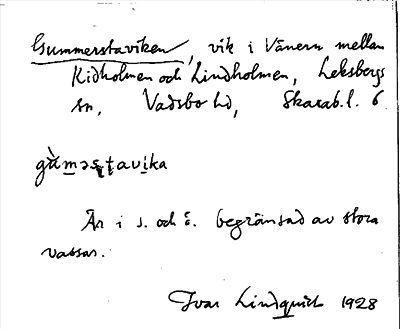 Gummerstaviken, vik i Vänern mellan
Kidholmen och Lindholmen, Leksbergs
sn, Vadsbo hd, Skarab. l. 6
gu̇̀məsṭavi̱ka
Är i s. och ö. begränsad av stora
vassar.
Ivar Lindquist 1928